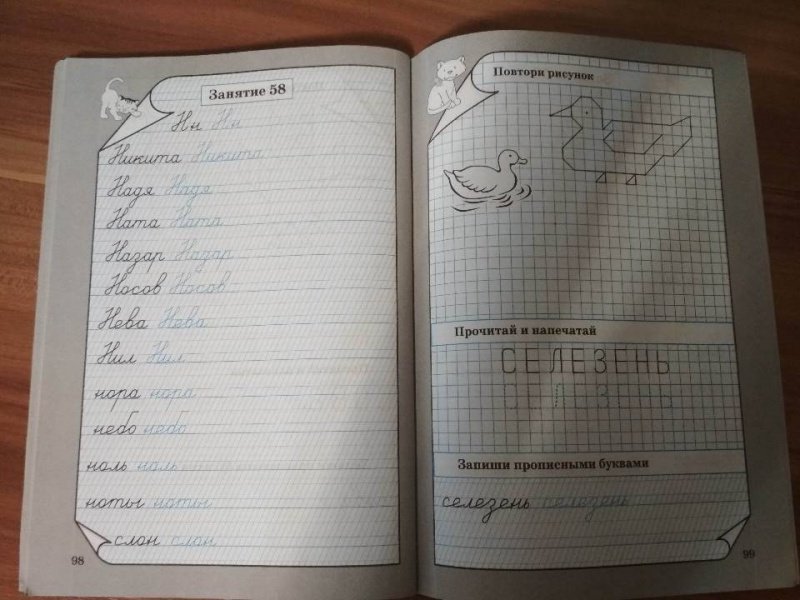 Занятие 58
Нн Нн
Никита Никита
Надя Надя
Ната Ната
Назар Назар
Носов Носов
Нева Нева
Нил Нил
нора нора
небо небо
ноль ноль
ноты ноты
слон слон
98
Повтори рисунок
Прочитай и напечатай
СЕЛЕЗЕНЬ
СЕЛЕЗЕНЬ
Запиши прописными буквами
селезень селезень
99